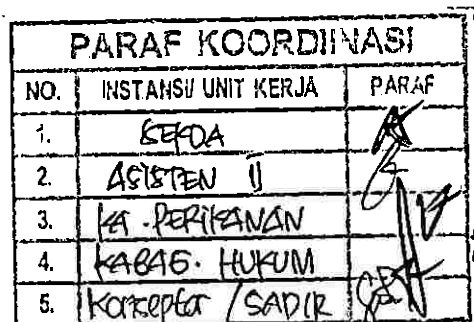 PARAF KOORDINASI
NO. INSTANSI/ UNIT KERJA PARAF
1. SEKDA
2. ASISTEN II
3. KA. PERIKANAN
4. KABAG. HUKUM
5. Konseptor / SADIR